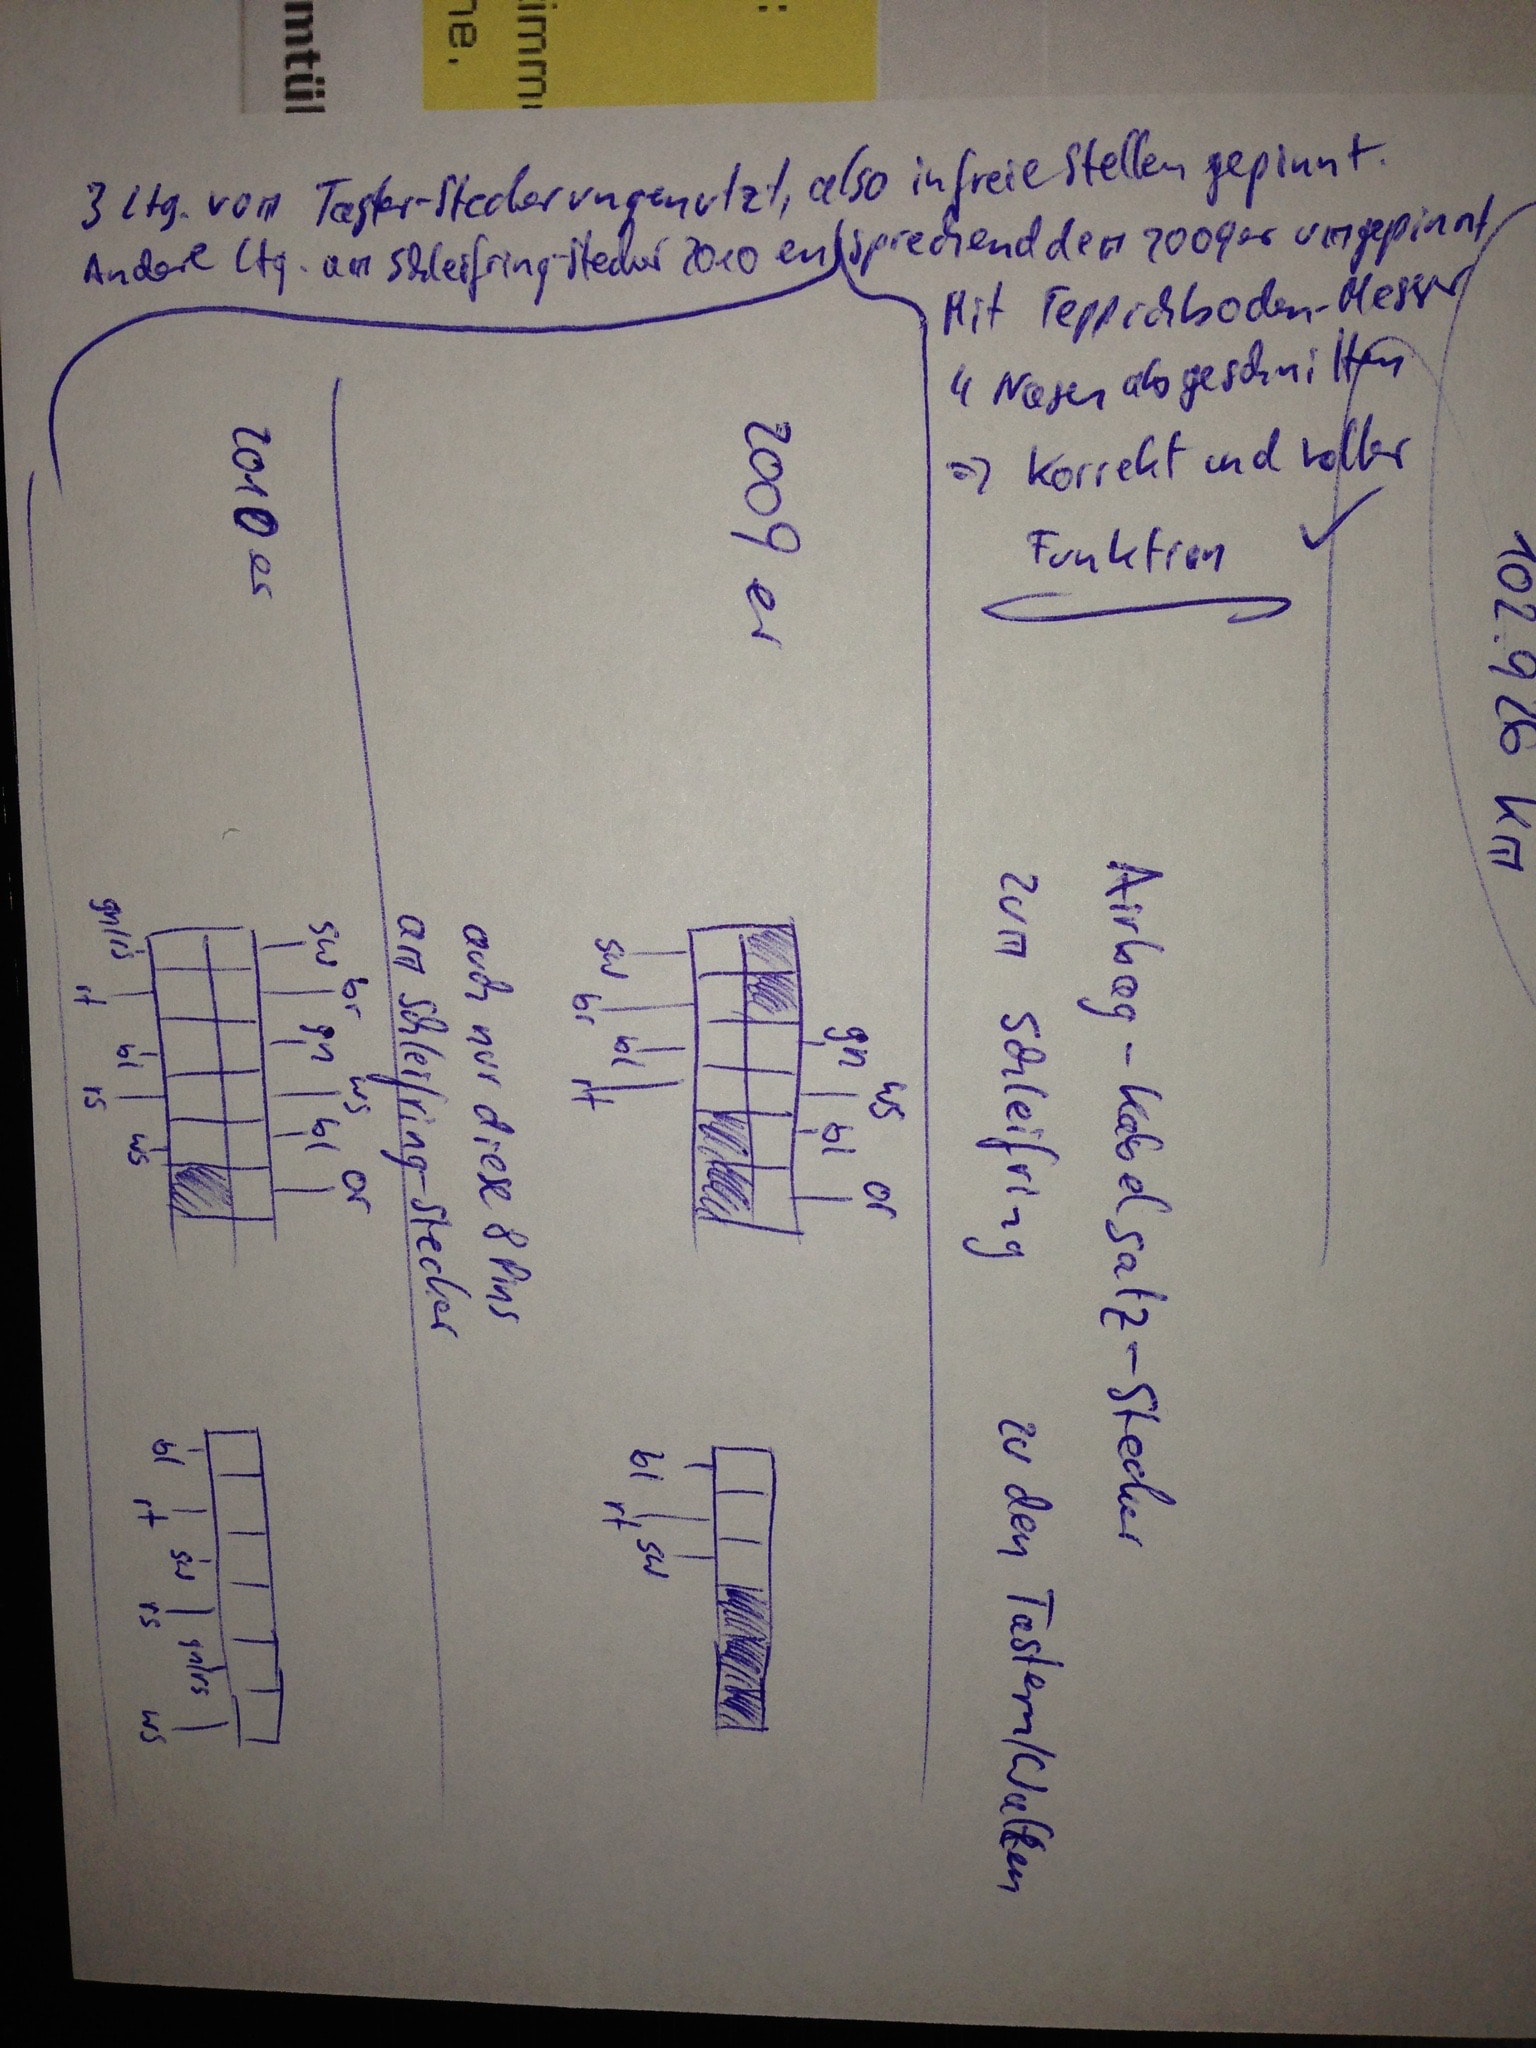 102.926 km
Airbag-Kabelsatz-Stecker
zum Schleifring
zu den Tastern/Walzen
2009er
gn ws bl or
sw br bl rt
bl rt sw
auch nur diese 8 Pins
am Schleifring-Stecker
2010er
sw br gn ws bl or
gn/rs rt bl rs ws
bl rt sw rs gn/rs ws
3 Ltg. vom Taster-Stecker ungenutzt, also in freie Stellen gepinnt.
Andere Ltg. am Schleifring-Stecker 2010 entsprechend dem 2009er umgepinnt
Mit Teppichboden-Messer
4 Nasen abgeschnitten
=> Korrekt und voller
Funktion ✓
imm
ne.
mtül